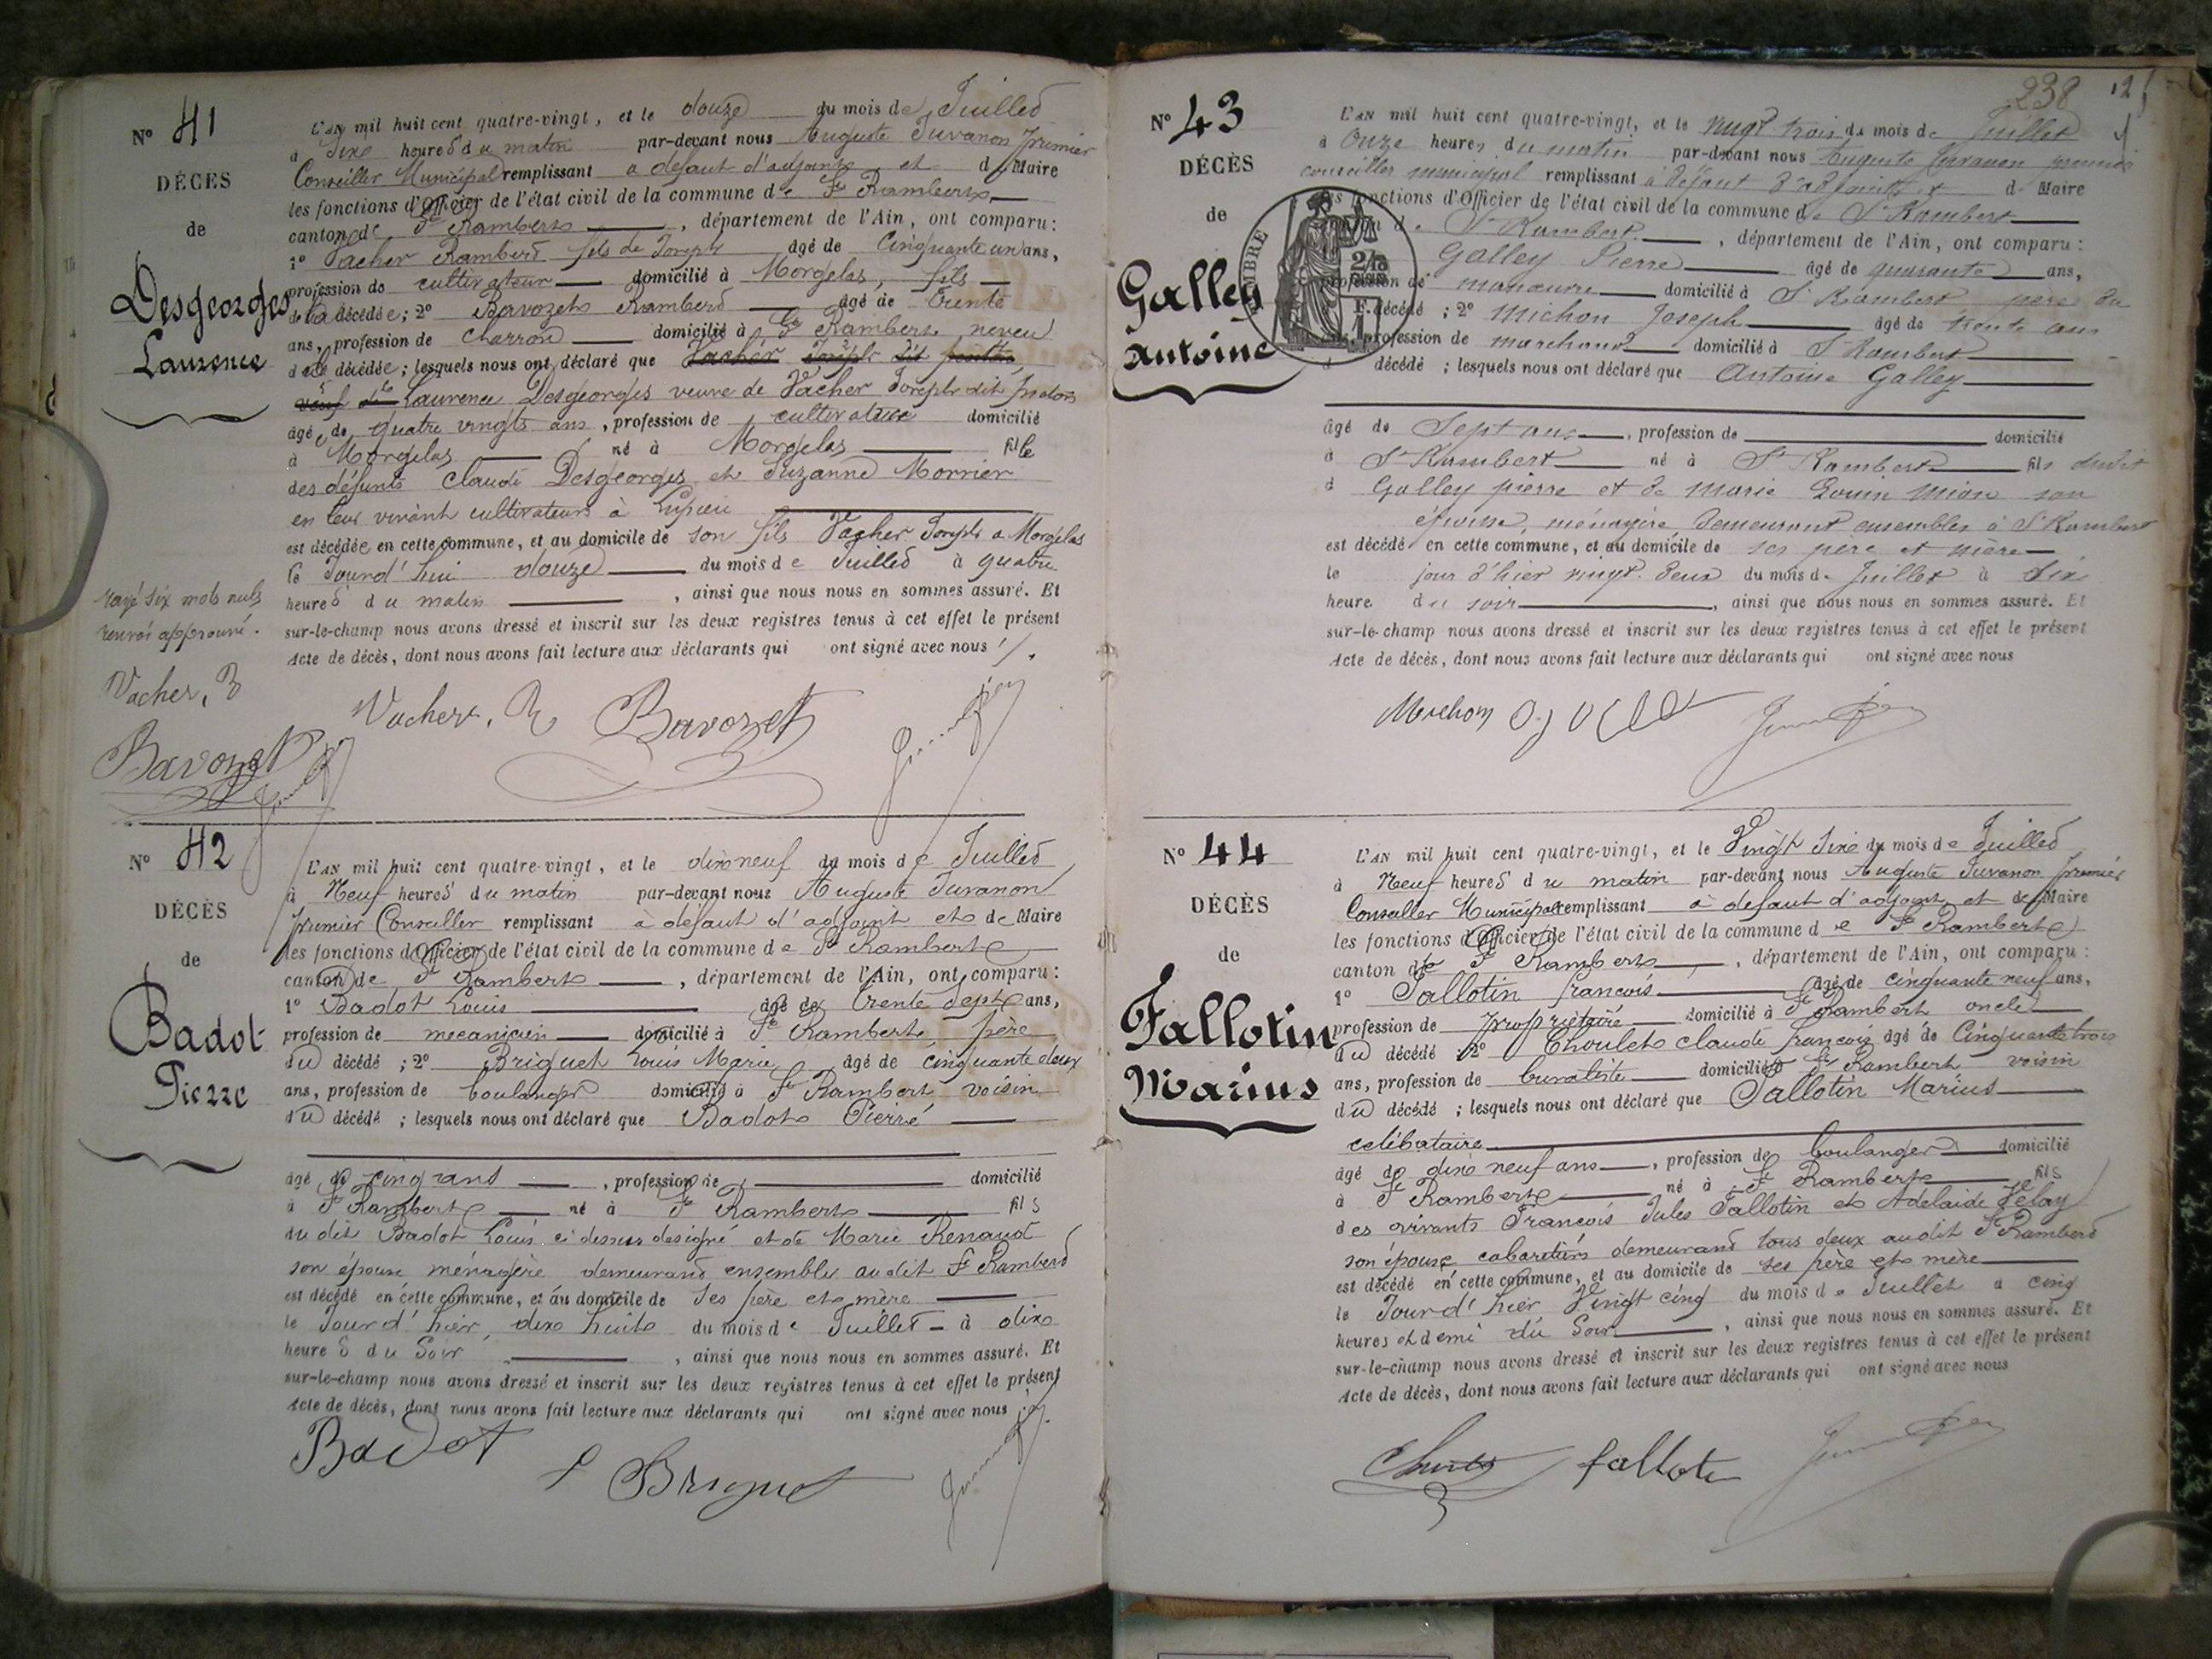 N° 41
DÉCÈS
de
Desgeorges
Laurence
L'AN mil huit cent quatre-vingt, et le douze du mois de Juillet
à dixe heures du matin par-devant nous Auguste Juvanon premier
Conseiller Municipal remplissant a défaut d'adjoints et de Maire
les fonctions d'Officier de l'état civil de la commune de St Rambert
canton de St Rambert, département de l'Ain, ont comparu:
1° Vacher Rambert fils de Joseph âgé de Cinquante un ans,
profession de cultivateur domicilié à Morgelas, fils
de la décédée; 2° Bavozet Rambert âgé de trente
ans, profession de charron domicilié à St Rambert neveu
de la décédée; lesquels nous ont déclaré que Vacher Joseph dit
veuf de Laurence Desgeorges veuve de Vacher Joseph dit
âgée de quatre vingts ans, profession de cultivatrice domicilié
à Morgelas né à Morgelas fille
des défunts Claude Desgeorges et Suzanne Morrier
en leur vivant cultivateurs à
est décédée en cette commune, et au domicile de son fils Vacher Joseph a Morgelas
le Jourd'hui douze du mois de Juillet à quatre
heures du matin, ainsi que nous nous en sommes assuré. Et
sur-le-champ nous avons dressé et inscrit sur les deux registres tenus à cet effet le présent
Acte de décès, dont nous avons fait lecture aux déclarants qui ont signé avec nous
rayé six mots nuls
renvoi approuvé.
Vacher, R
Bavozet
Vacher, R Bavozet
N° 42
DÉCÈS
de
Badot
Pierre
L'AN mil huit cent quatre-vingt, et le dixneuf du mois de Juillet
à Neuf heures du matin par-devant nous Auguste Juvanon
premier Conseiller remplissant à défaut d'adjoint et de Maire
les fonctions d'Officier de l'état civil de la commune de St Rambert
canton de St Rambert, département de l'Ain, ont comparu:
1° Badot Louis âgé de trente sept ans,
profession de mecanicien domicilié à St Rambert, père
du décédé; 2° Briguet Louis Marie âgé de cinquante deux
ans, profession de boulanger domicilié à St Rambert voisin
du décédé; lesquels nous ont déclaré que Badot Pierre
âgé de cinq ans, profession de domicilié
à St Rambert né à St Rambert fils
du dit Badot Louis ci dessus designé et de Marie Renaud
son épouse ménagère demeurant ensemble audit St Rambert
est décédé en cette commune, et au domicile de ses père et mère
le Jourd'hier, dixe huit du mois de Juillet à dixe
heures du Soir, ainsi que nous nous en sommes assuré. Et
sur-le-champ nous avons dressé et inscrit sur les deux registres tenus à cet effet le présent
Acte de décès, dont nous avons fait lecture aux déclarants qui ont signé avec nous
Badot L Briguet
238
N° 43
DÉCÈS
de
Galley
Antoine
L'AN mil huit cent quatre-vingt, et le vingt trois du mois de Juillet
à Onze heures du matin par-devant nous Auguste Juvanon premier
conseiller municipal remplissant à défaut d'adjoints et de Maire
les fonctions d'Officier de l'état civil de la commune de St Rambert
canton de St Rambert, département de l'Ain, ont comparu:
Galley Pierre âgé de quarante ans,
profession de manoeuvre domicilié à St Rambert père du
décédé; 2° Michon Joseph âgé de trente ans
profession de marchand domicilié à St Rambert
d décédé; lesquels nous ont déclaré que Antoine Galley
âgé de Sept ans, profession de domicilié
à St Rambert né à St Rambert fils dudit
d Galley pierre et de marie son
épouse, ménagère demeurant ensembles à St Rambert
est décédé en cette commune, et au domicile de ses père et mère
le jour d'hier vingt-deux du mois de Juillet à Six
heure du soir, ainsi que nous nous en sommes assuré. Et
sur-le-champ nous avons dressé et inscrit sur les deux registres tenus à cet effet le présent
Acte de décès, dont nous avons fait lecture aux déclarants qui ont signé avec nous
Michon
N° 44
DÉCÈS
de
Fallotin
Marius
L'AN mil huit cent quatre-vingt, et le Vingt Sixe du mois de Juillet
à Neuf heures du matin par-devant nous Auguste Juvanon premier
Conseiller Municipal remplissant à defaut d'adjoint et de Maire
les fonctions d'Officier de l'état civil de la commune de St Rambert
canton de St Rambert, département de l'Ain, ont comparu:
1° Fallotin françois âgé de cinquante neuf ans,
profession de propriétaire domicilié à St Rambert oncle
du décédé 2° Choulet claude françois âgé de Cinquante trois
ans, profession de domicilié à St Rambert voisin
du décédé; lesquels nous ont déclaré que Fallotin Marius
celibataire
âgé de dixe neuf ans, profession de boulanger domicilié
à St Rambert né à St Rambert fils
des vivants François Jules Fallotin et Adelaide Velay
son épouse cabaretiers demeurant tous deux audit St Rambert
est décédé en cette commune, et au domicile de ses père et mère
le Jourd'hier Vingt cinq du mois de Juillet à cinq
heures et demi du Soir, ainsi que nous nous en sommes assuré. Et
sur-le-champ nous avons dressé et inscrit sur les deux registres tenus à cet effet le présent
Acte de décès, dont nous avons fait lecture aux déclarants qui ont signé avec nous
fallotin